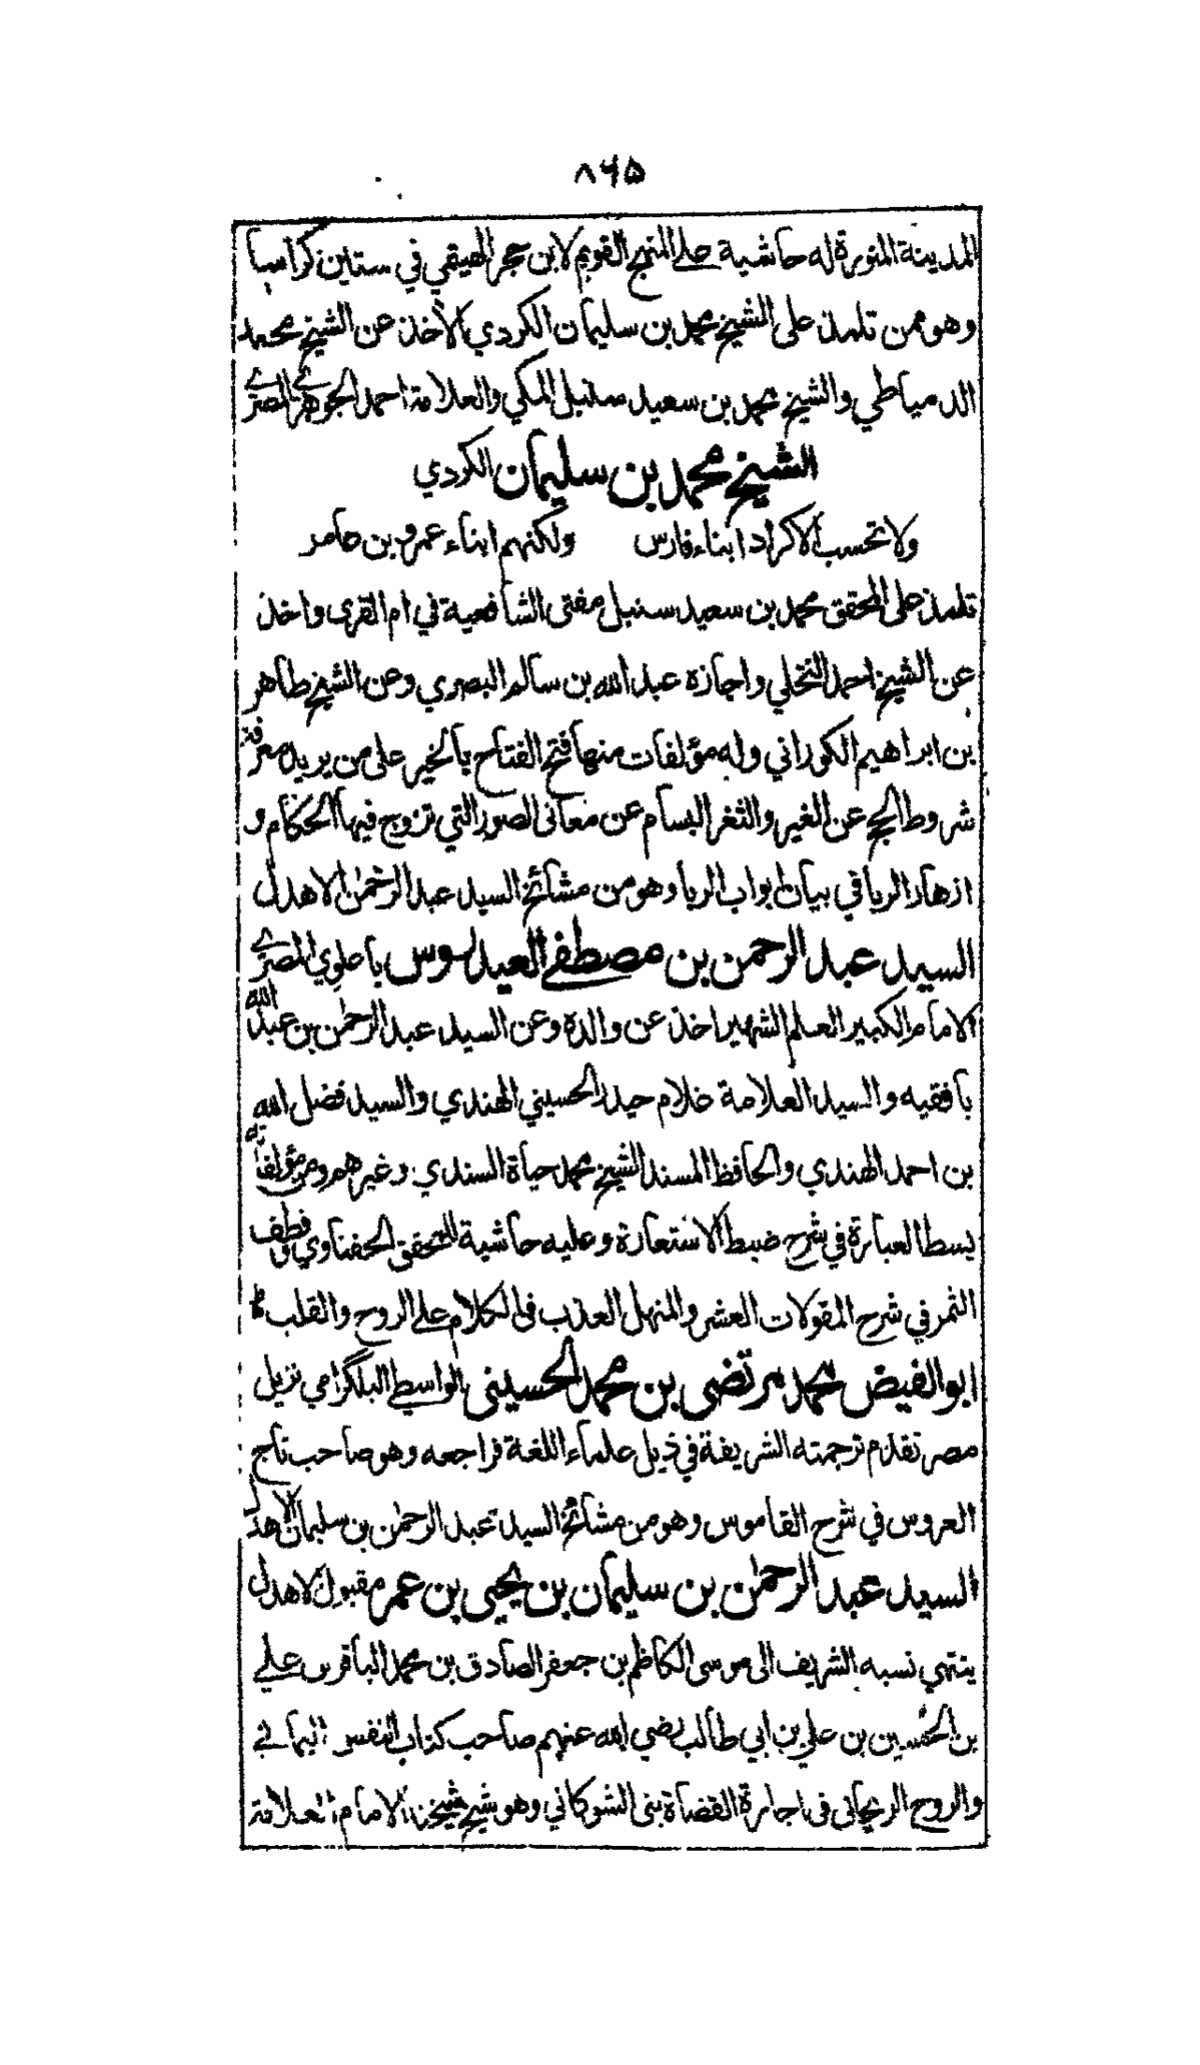 ۸۶۵
المدينة المنورة له حاشية على المنهج القويم لابن حجر الهيتمي في ستين كراسا
وهو ممن تلمذ على الشيخ محمد بن سليمان الكردي الآخذ عن الشيخ محمد
الدمياطي والشيخ محمد بن سعيد سنبل المكي والعلامة احمد الجوهري المصري
الشيخ محمد بن سليمان الكردي
ولا تحسب الاكراد ابناء فارس ولكنهم ابناء عمرو بن عامر
تلمذ على المحقق محمد بن سعيد سنبل مفتى الشافعية في ام القرى واخذ
عن الشيخ احمد النخلي واجازه عبد الله بن سالم البصري وعن الشيخ طاهر
بن ابراهيم الكوراني وله مؤلفات منها فتح الفتاح بالخير على من يريد معرفة
شروط الحج عن الغير والثغر البسام عن معانى الصور التي تزوج فيها الحكام و
ازهار الربا في بيان ابواب الربا وهو من مشائخ السيد عبد الرحمن الاهدل
السيد عبد الرحمن بن مصطفى العيدروس باعلوي المصري
الامام الكبير العلم الشهير اخذ عن والده وعن السيد عبد الرحمن بن عبد الله
بافقيه والسيد العلامة غلام حيدر الحسيني الهندي والسيد فضل الله
بن احمد الهندي والحافظ المسند الشيخ محمد حياة السندي وغيرهم ومن مؤلفاته
بسط العبارة في شرح ضبط الاستعارة وعليه حاشية للتحقق الحفناوي وقطف
الثمر في شرح المقولات العشر والمنهل العذب فى الكلام على الروح والقلب
ابو الفيض محمد مرتضى بن محمد الحسينى الواسطي البلگرامي نزيل
مصر تقدم ترجمته الشريفة في ذيل علماء اللغة فراجعه وهو صاحب تاج
العروس في شرح القاموس وهو من مشائخ السيد عبد الرحمن بن سليمان الاهدل
السيد عبد الرحمن بن سليمان بن يحيى بن عمر مقبول الاهدل
ينتهي نسبه الشريف الى موسى الكاظم بن جعفر الصادق بن محمد الباقر بن علي
بن الحسين بن علي بن ابي طالب رضي الله عنهم صاحب كتاب النفس اليماني
والروح الريحاني في اجازة القضاة بنى الشوكاني وهو شيخ شيخنا الامام العلامة